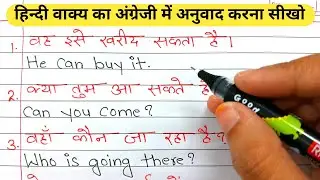 हिन्दी वाक्य का अंग्रेजी में अनुवाद करना सीखो
1. वह इसे खरीद सकता है।
He can buy it.
2. क्या तुम आ सकते
Can you come?
3. वहाँ कौन जा रहा है?
Who is going there?
Good